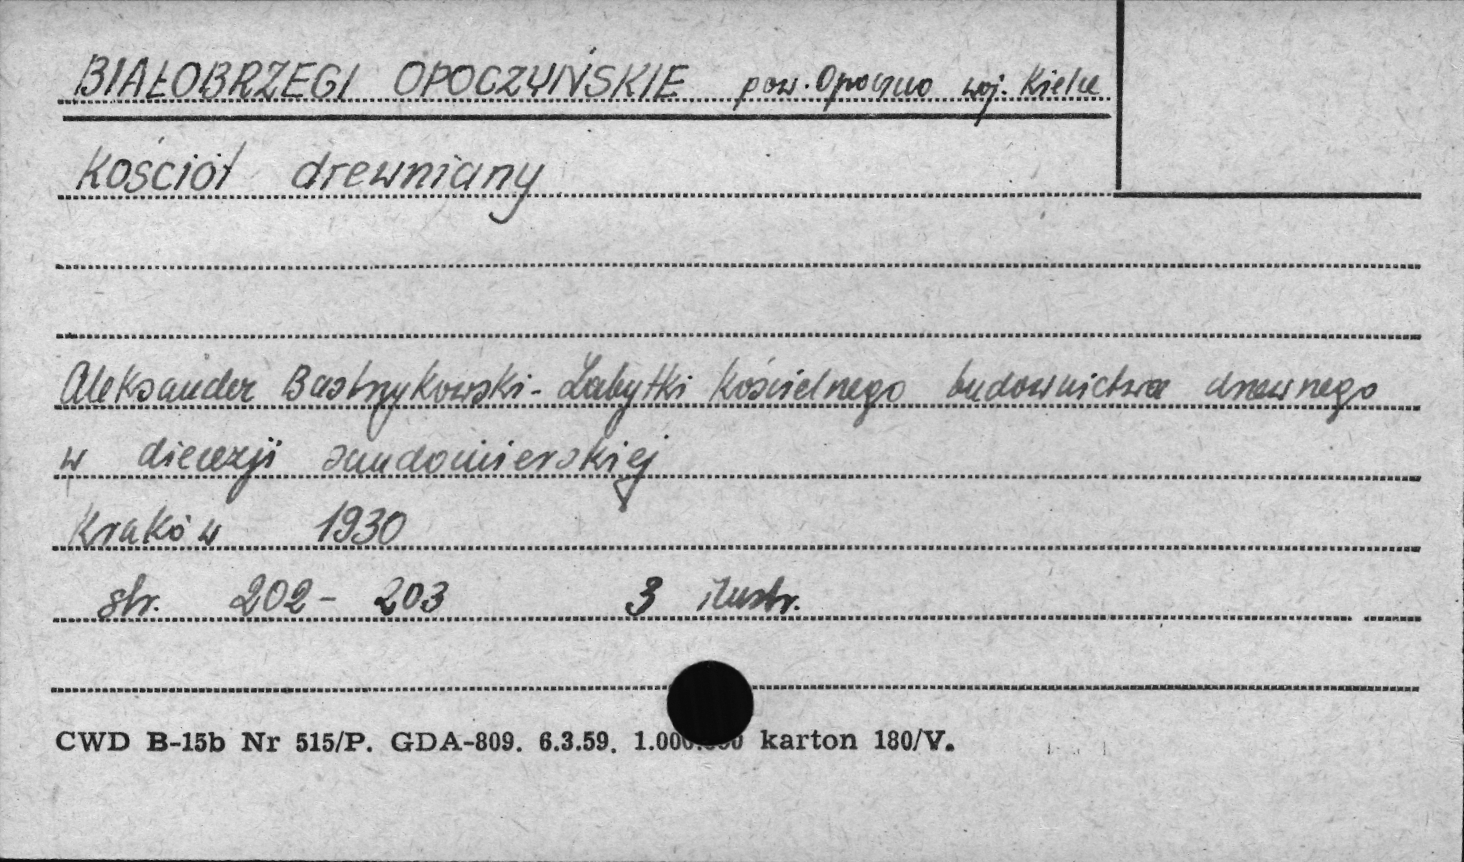 BIAŁOBRZEGI OPOCZYŃSKIE pow. Opoczno woj. Kielce
Kościół drewniany
Aleksander Bastrzykowski - Zabytki kościelnego budownictwa drewnego
w diecezji sandomierskiej
Kraków 1930
str. 202 - 203 3 ilustr.
CWD B-15b Nr 515/P. GDA-809. 6.3.59. 1.000.000 karton 180/V.